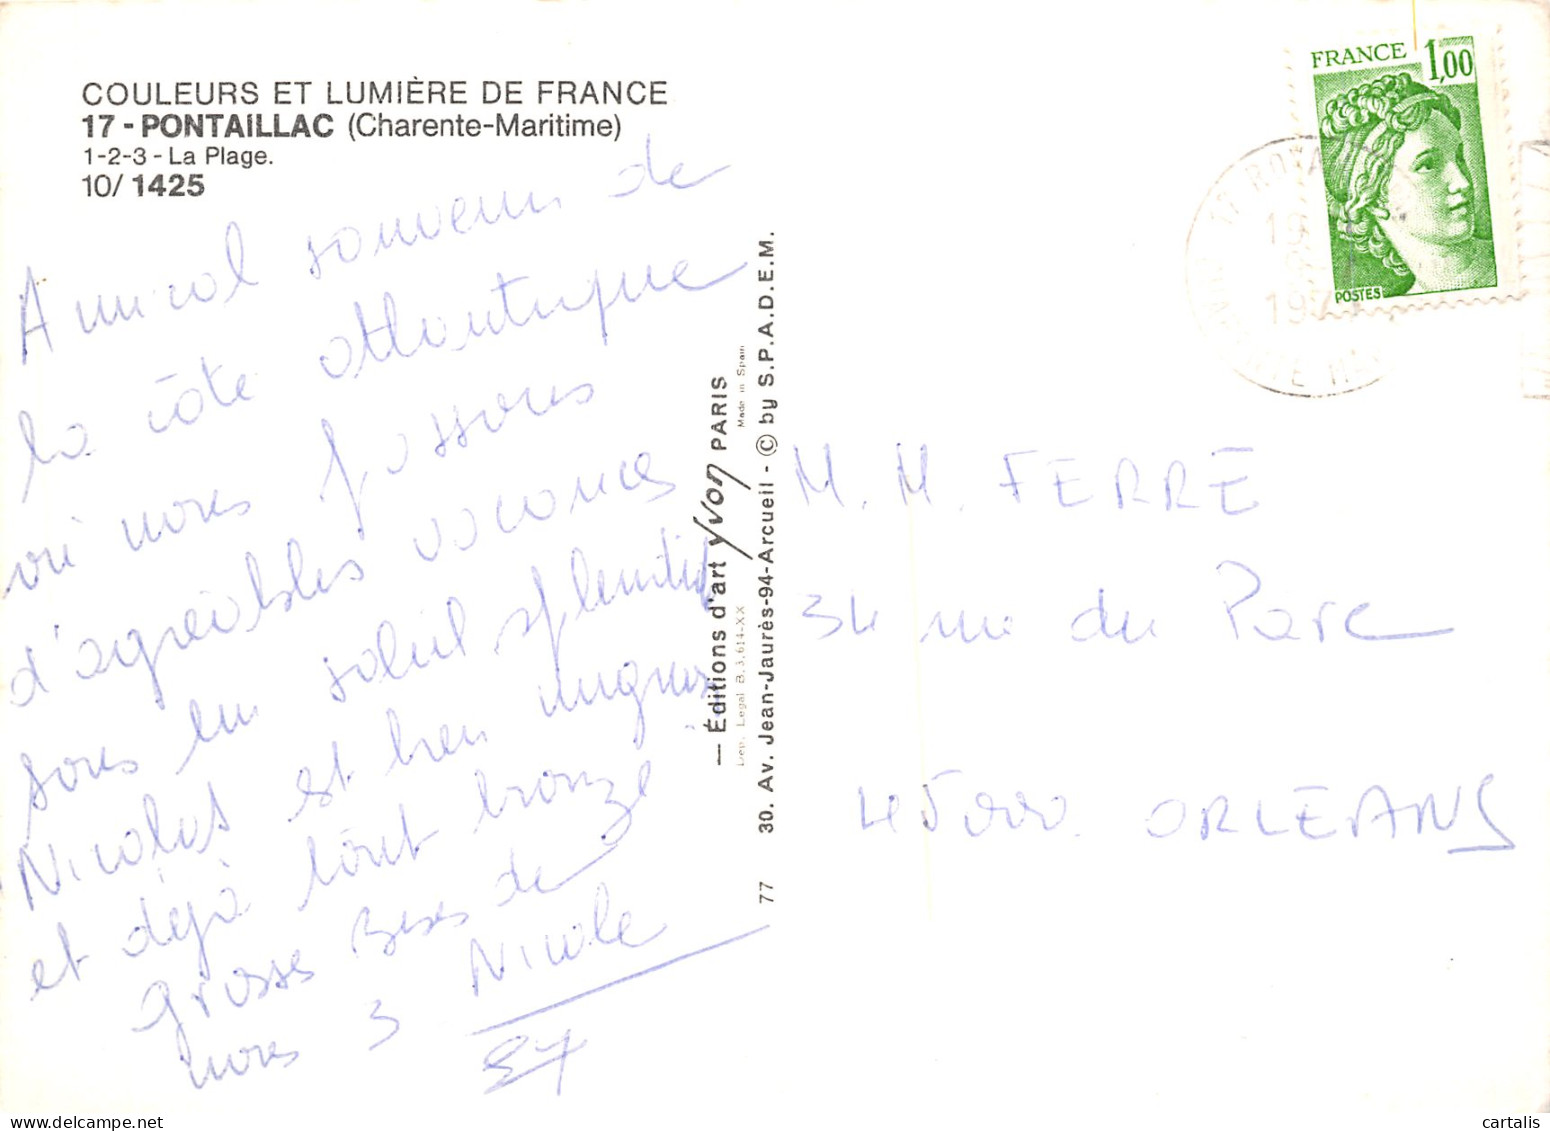 COULEURS ET LUMIÈRE DE FRANCE
17 - PONTAILLAC (Charente-Maritime)
1-2-3 - La Plage.
10/ 1425
Amical souvenir de
la côte atlantique
où nous passons
d'agréables vacances
sous un soleil splendide
Nicolas est bien mignon
et déjà tout bronzé
Grosses Bises de
nous 3 Nicole
— Éditions d'art YVON PARIS
Made in Spain
Dep. Legal B. 3.614-XX
30. Av. Jean-Jaurès-94-Arcueil - © by S.P.A.D.E.M.
77
FRANCE 1,00
POSTES
17 ROYA
19
197
M. M. FERRE
34 rue du Parc
45000 ORLEANS
cartalis